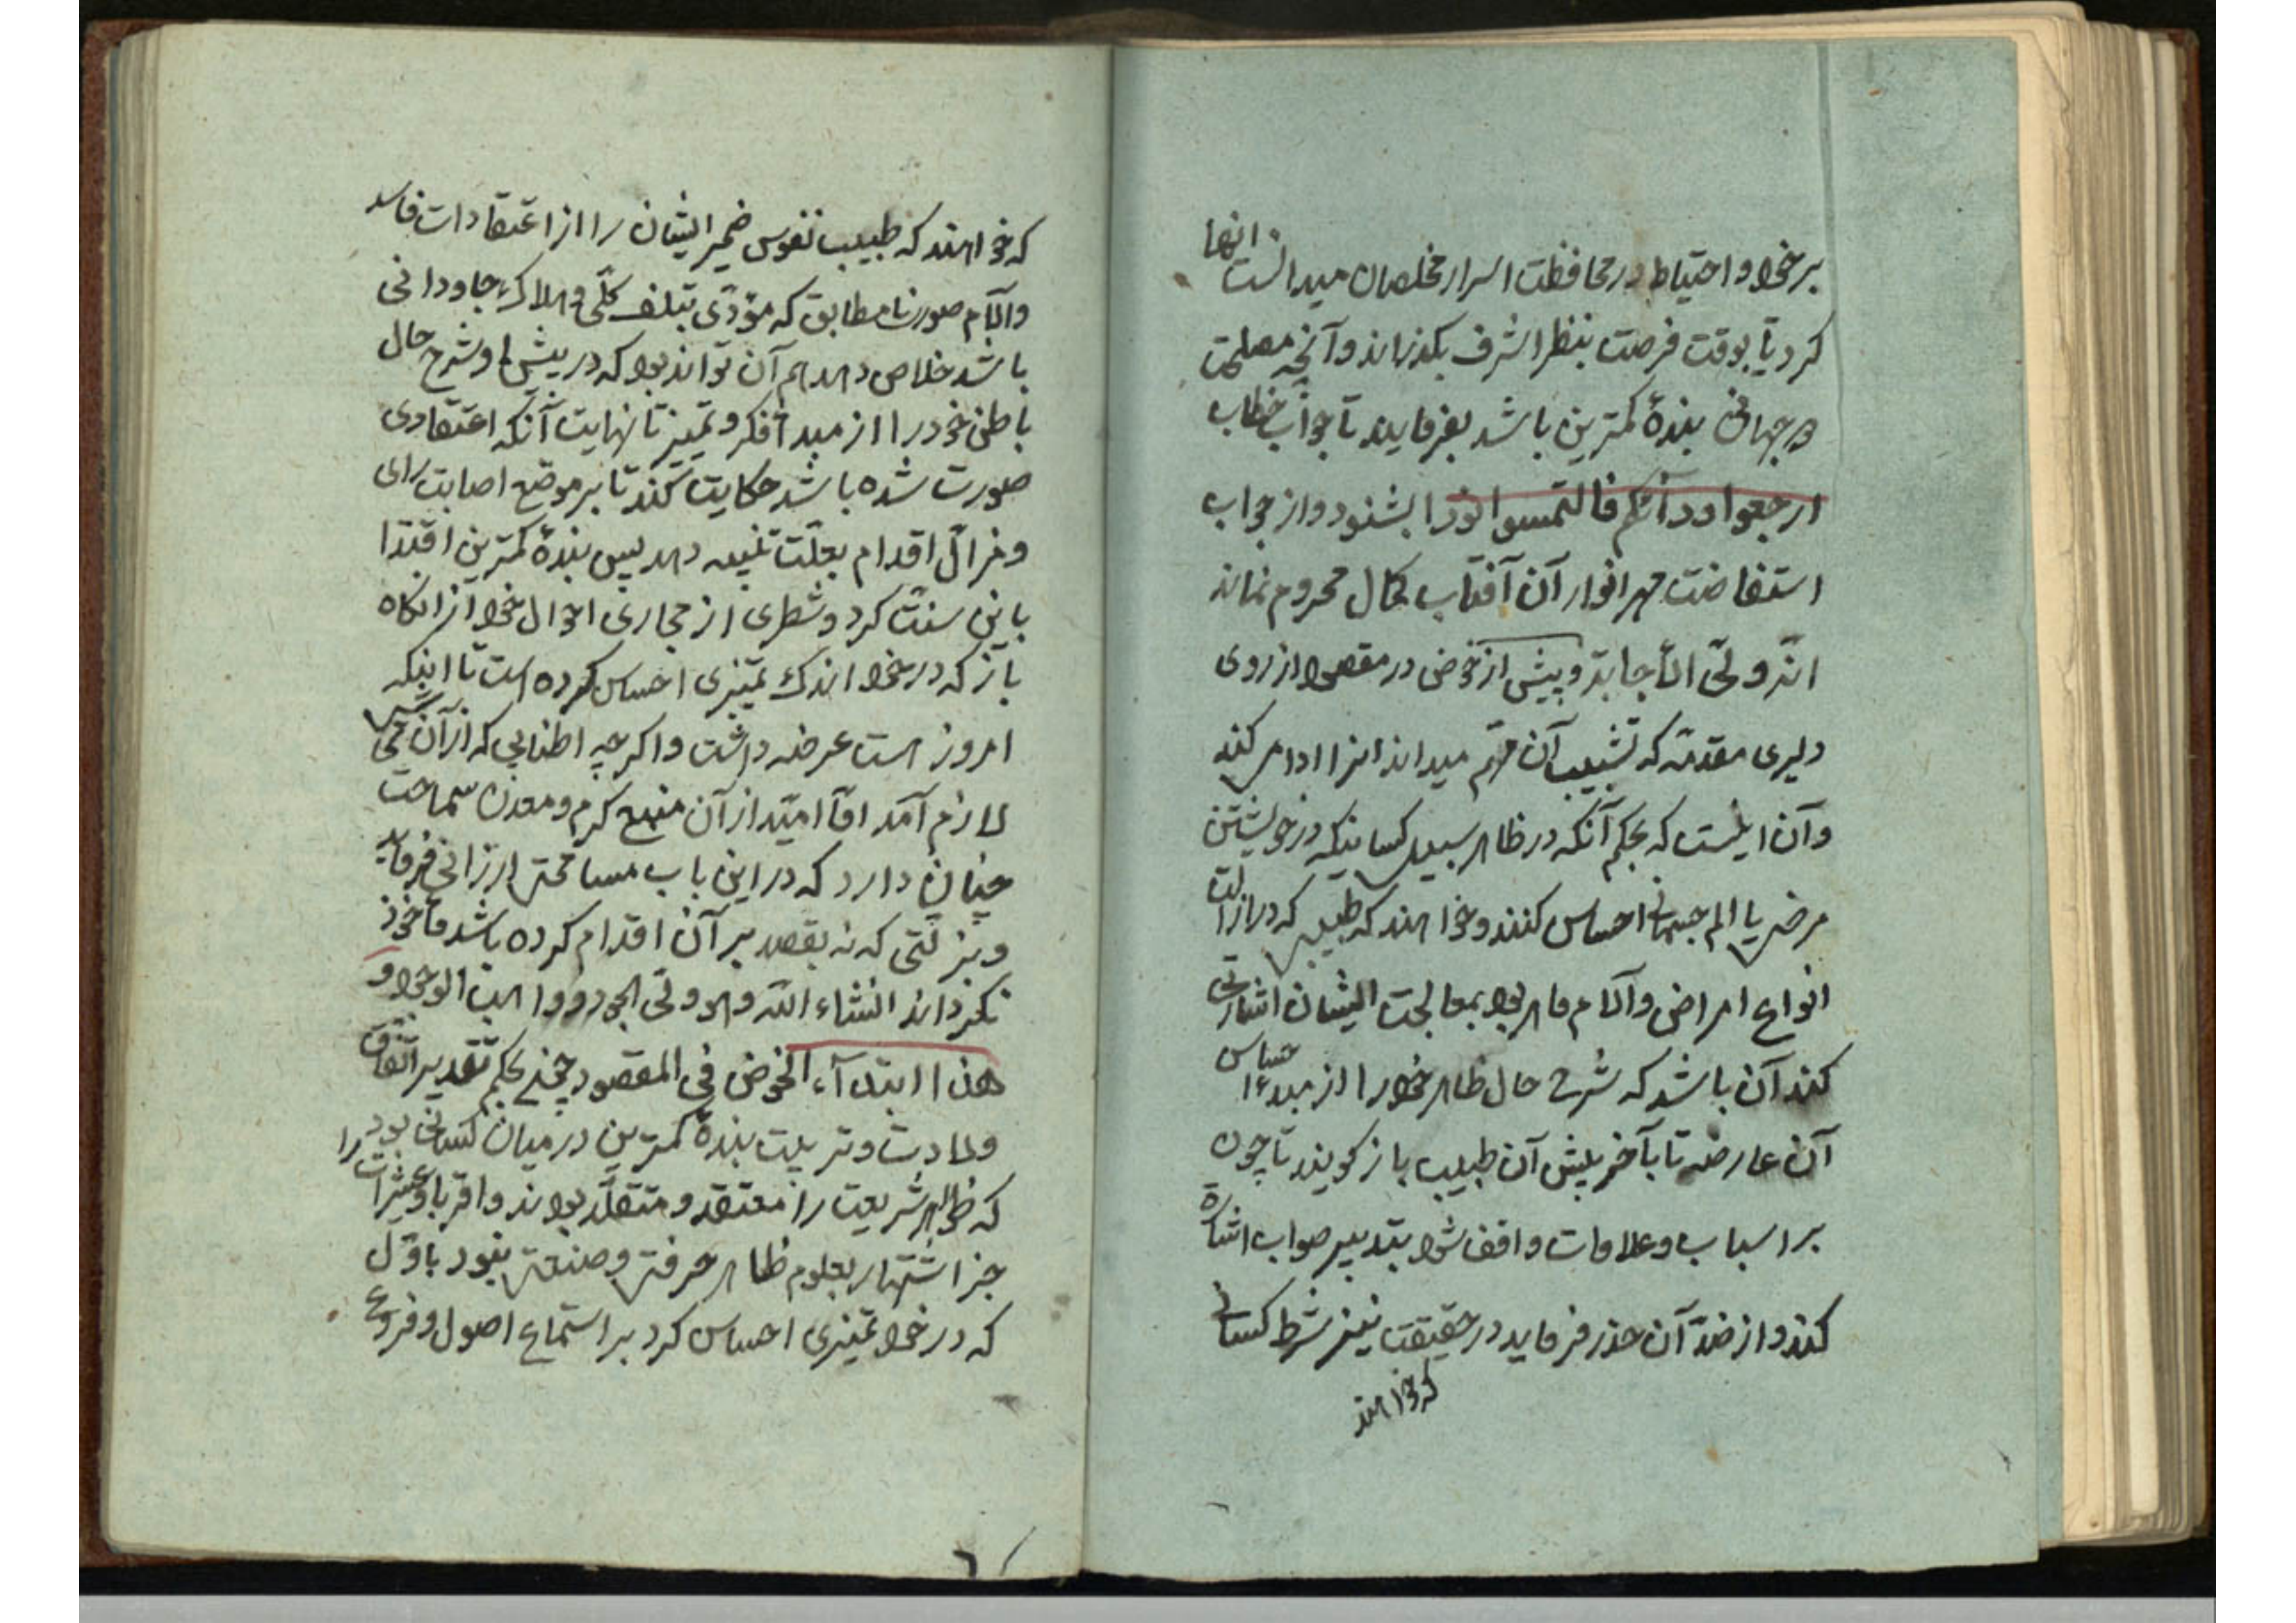 برخود و احتیاط در محافظت اسرار مخلصان میدانست انها
کرد تا بوقت فرصت بنظر اشرف بکذراند و آنچه مصلحت
دو جهانی بندۀ کمترین باشد بفرمایند تا جواب خطاب
ارجعوا ورآئکم فالتمسوا نورا بشنود و از جواب
استفاضت مهر انوار آن آفتاب کمال محروم نماند
انّه ولیّ الأجابة و پیش از خوض در مقصود از روی
دلیری مقدمّه که تشبیب آن مهم میداند انرا ادا میکند
و آن اینست که بحکم آنکه در ظاهر سبیل کسانیکه در خویشتن
مرضی یا الم جسمانی احساس کنند و خواهند که طبیبی که در ازالت
انواع امراض و آلام ماهر بود بمعالجت ایشان اشارتی
کند آن باشد که شرح حال ظاهر خود را از مبدء احساس
آن عارضه تا بآخر پیش آن طبیب باز کویند تا چون
بر اسباب و علامات واقف شود بتدبیر صواب اشارة
کند و از ضدّ آن حذر فرماید در حقیقت نیز شرط کسانی
که خواهند
که خواهند که طبیب نفوس ضمیر ایشان را از اعتقادات فاسد
و آلام صورت نامطابق که مؤدّی بتلف کلّی و هلاک جاودانی
باشد خلاص دهد هم آن تواند بود که در پیش او شرح حال
باطنی خود را از مبدأ فکر و تمییز تا نهایت آنکه اعتقادی
صورت شده باشد حکایت کند تا بر موضع اصابت رای
و مزالّ اقدام بعلّت تنبیه دهد پس بندۀ کمترین اقتدا
باین سنّت کرد و شطری از مجاری احوال خود از انکاه
باز که در خود اندک تمیزی احساس کرده است تا اینکه
امروز است عرضه داشت و اکرچه اطنابی که از آن تحاشی
لازم آمد امّا امیّد از آن منبع کرم و معدن سماحت
چنان دارد که در این باب مسامحتی ارزانی فرماید
و بزلّتی که نه بقصد بر آن اقدام کرده باشد مأخوذ
نکرداند انشاء اللّه وهو ولیّ الجود و واهب الوجود و
هذا ابتدآء الخوض فی المقصود چنین بحکم تقدیر اتفّاق
ولادت و تربیت بندۀ کمترین در میان کسانی بود
که ظواهر شریعت را معتقد و متقلّد بودند و اقربا و عشیرات را
جز اشتهار بعلوم ظاهر حرفتی و صنعتی نبود باوّل
که در خود تمیزی احساس کرد بر استماع اصول و فروع